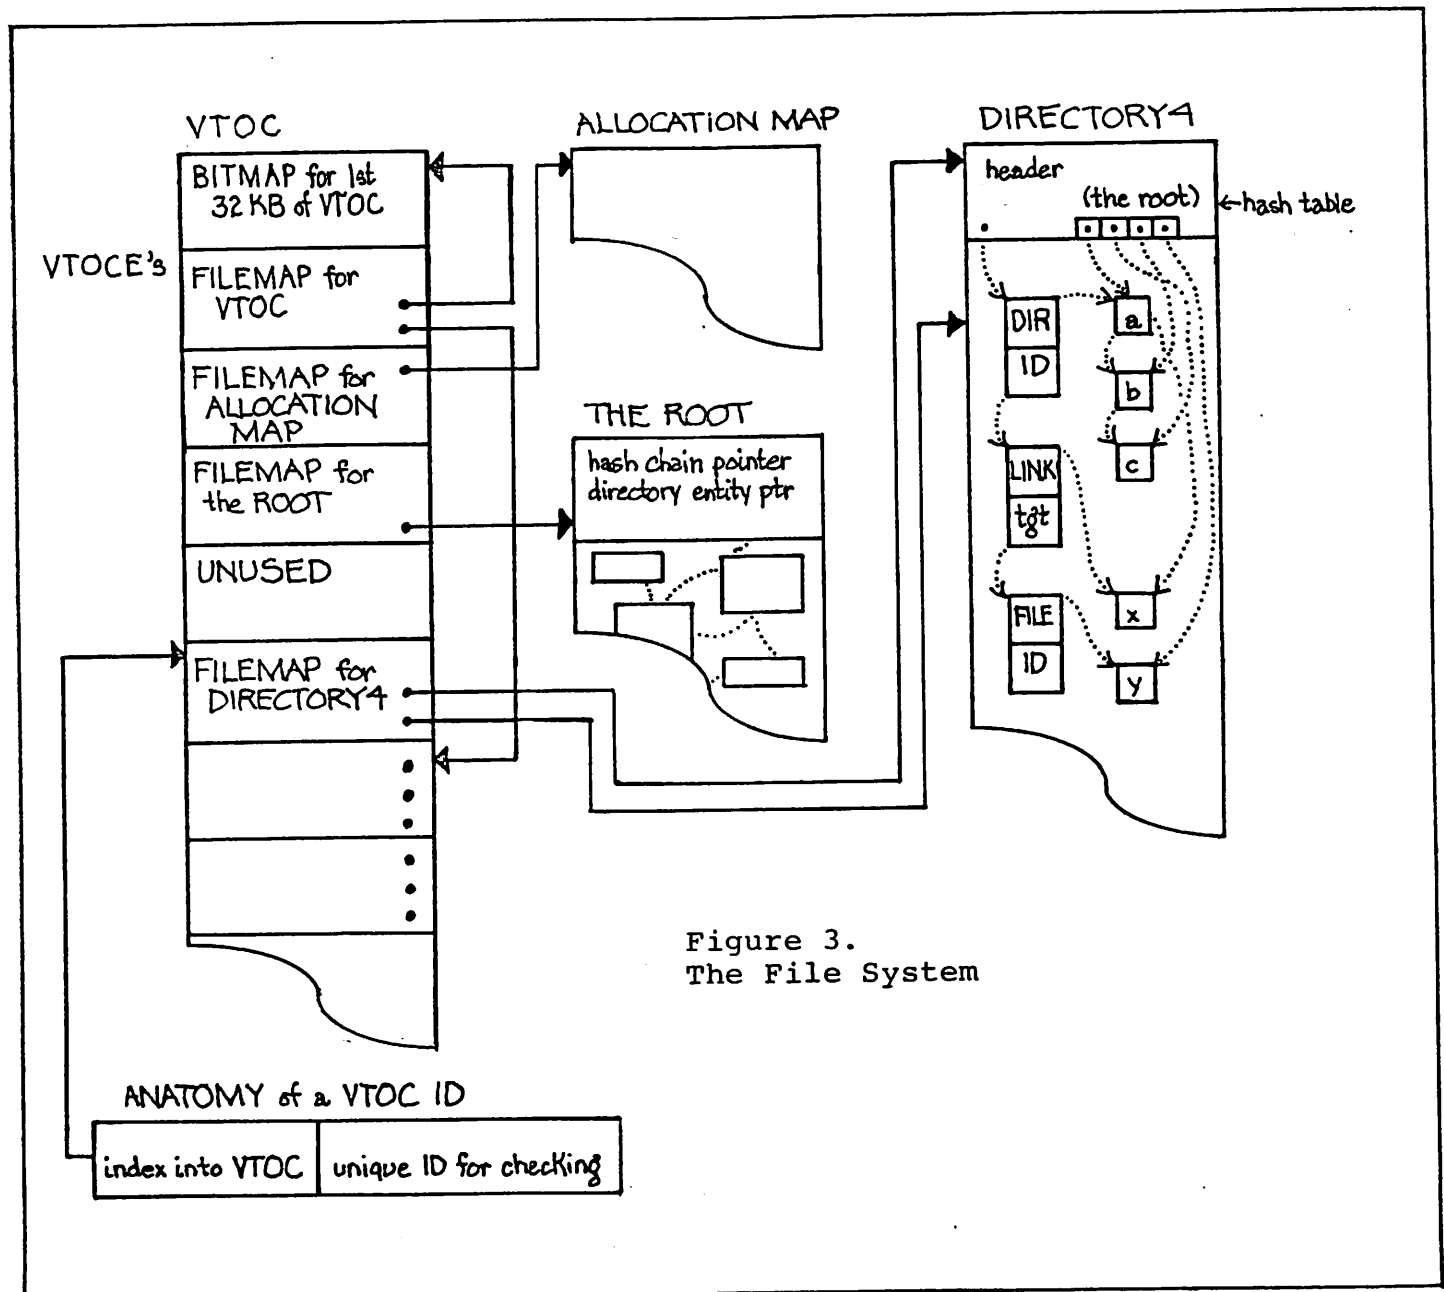 VTOC
BITMAP for 1st
32 KB of VTOC
VTOCE's
FILEMAP for
VTOC
FILEMAP for
ALLOCATION
MAP
FILEMAP for
the ROOT
UNUSED
FILEMAP for
DIRECTORY4
ALLOCATION MAP
THE ROOT
hash chain pointer
directory entity ptr
DIRECTORY4
header
(the root)
hash table
DIR
ID
a
b
c
LINK
tgt
FILE
ID
x
y
Figure 3.
The File System
ANATOMY of a VTOC ID
index into VTOC
unique ID for checking